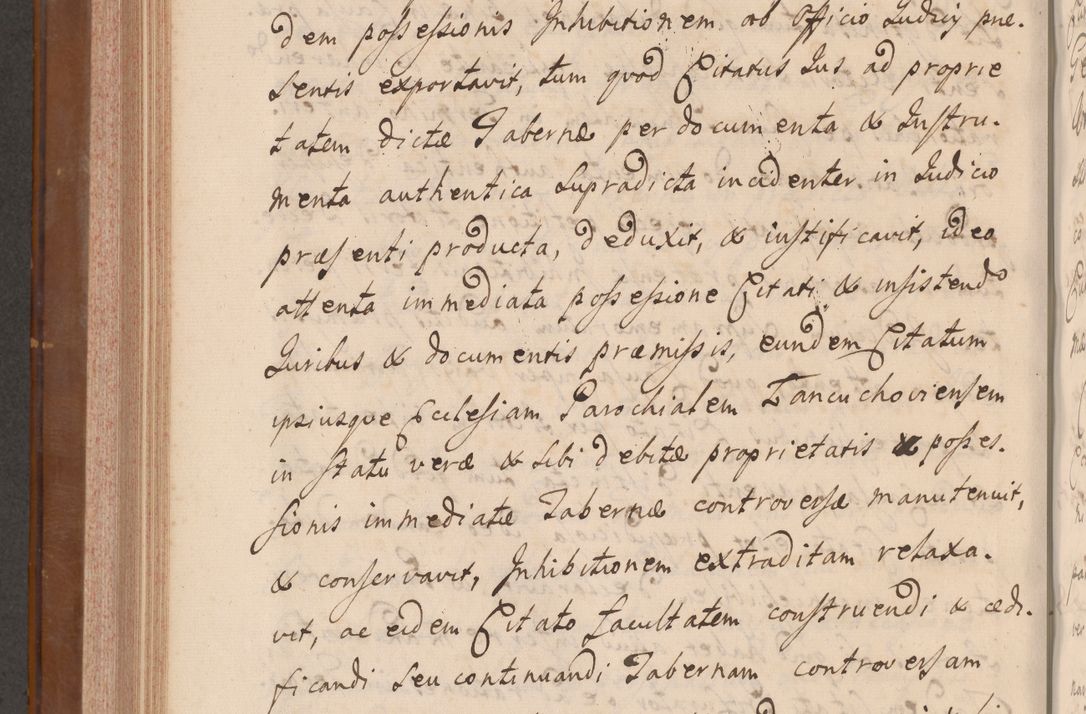 dem possessionis Inhibitionem ab Officio Judicij præ-
sentis exportavit, tum quod Citatus Jus ad proprie
tatem dictæ Tabernæ per documenta & Instru-
menta authentica supradicta incidenter in Judicio
præsenti producta, deduxit, & iustificavit, ideo
attenta immediata possessione Citati & insistendo
Juribus & documentis præmissis, eundem Citatum
ipsiusque Ecclesiam Parochialem Łancuchoviensem
in statu veræ & sibi debitæ proprietatis & posses-
sionis immediatæ Tabernæ controversæ manutenuit,
& conservavit, Inhibitionem extraditam relaxa-
vit, ac eidem Citato facultatem construendi & ædi-
ficandi seu continuandi Tabernam controversam